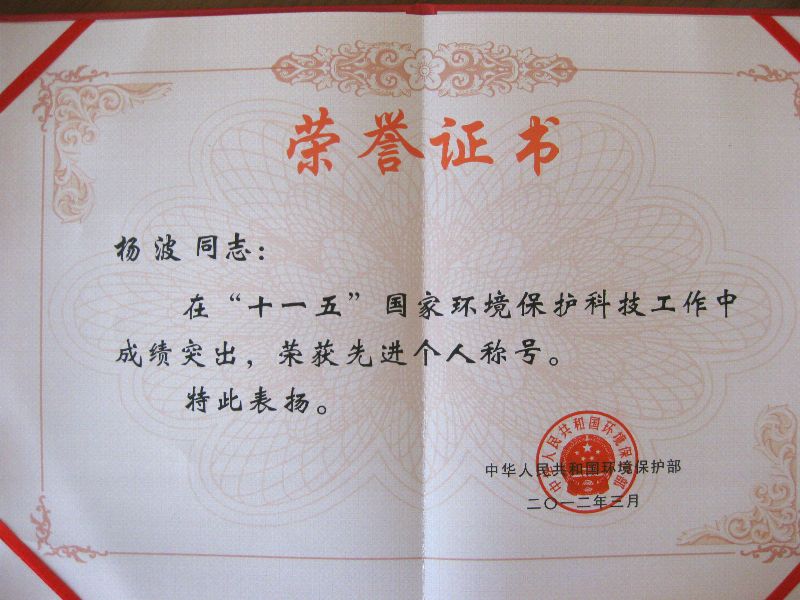 荣誉证书
杨波同志：
在“十一五”国家环境保护科技工作中
成绩突出，荣获先进个人称号。
特此表扬。
中华人民共和国环境保护部
中华人民共和国环境保护部
二〇一二年三月